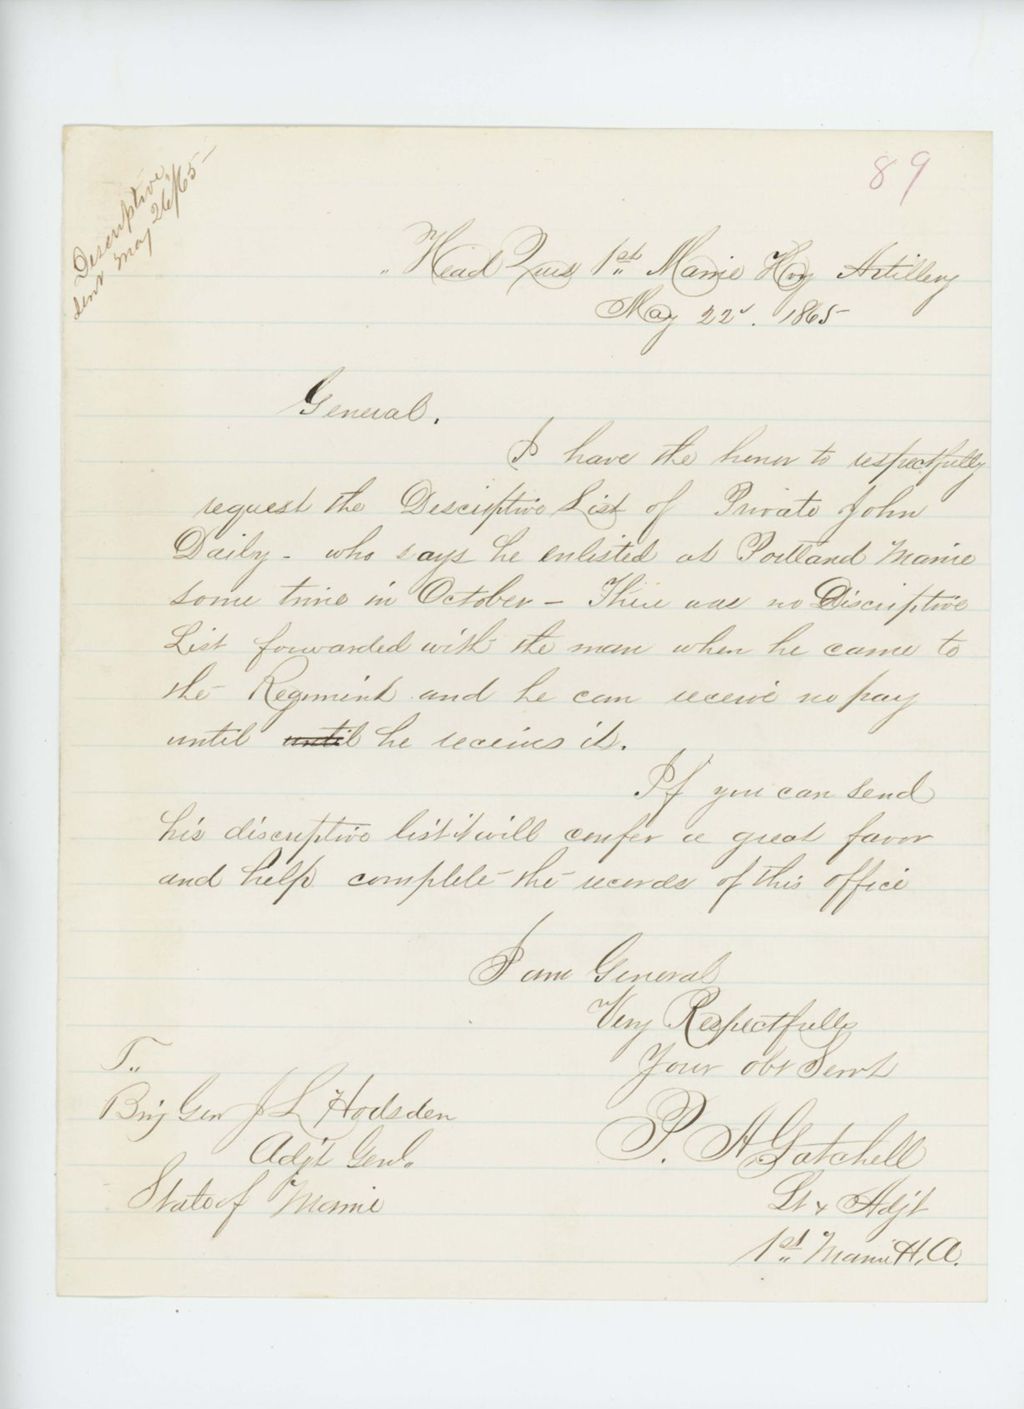 Descriptive
sent May 26/65-
89
Head Qrs 1st Maine Hvy Artillery
May 22d. 1865-
General.
I have the honor to respectfully
request the Descriptive List of Private John
Daily - who says he enlisted at Portland Maine
some time in October - There was no Discriptive
List forwarded with the man when he came to
the Regiment and he can receive no pay
until until he receives it.
If you can send
his discriptive list it will confer a great favor
and help complete the records of this office
I am General
Very Respectfully
Your obt Servt
P. A Gatchell
Lt & Adjt
1st Maine H. A.
To
Brig Gen J L Hodsden
Adjt Genl.
State of Maine